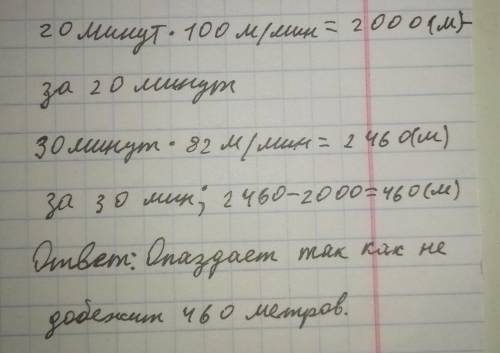 20 минут · 100 м/мин = 2000(м)-
за 20 минут
30 минут · 82 м/мин = 2460(м)
за 30 мин; 2460-2000=460(м)
Ответ: Опаздает так как не
добежит 460 метров.